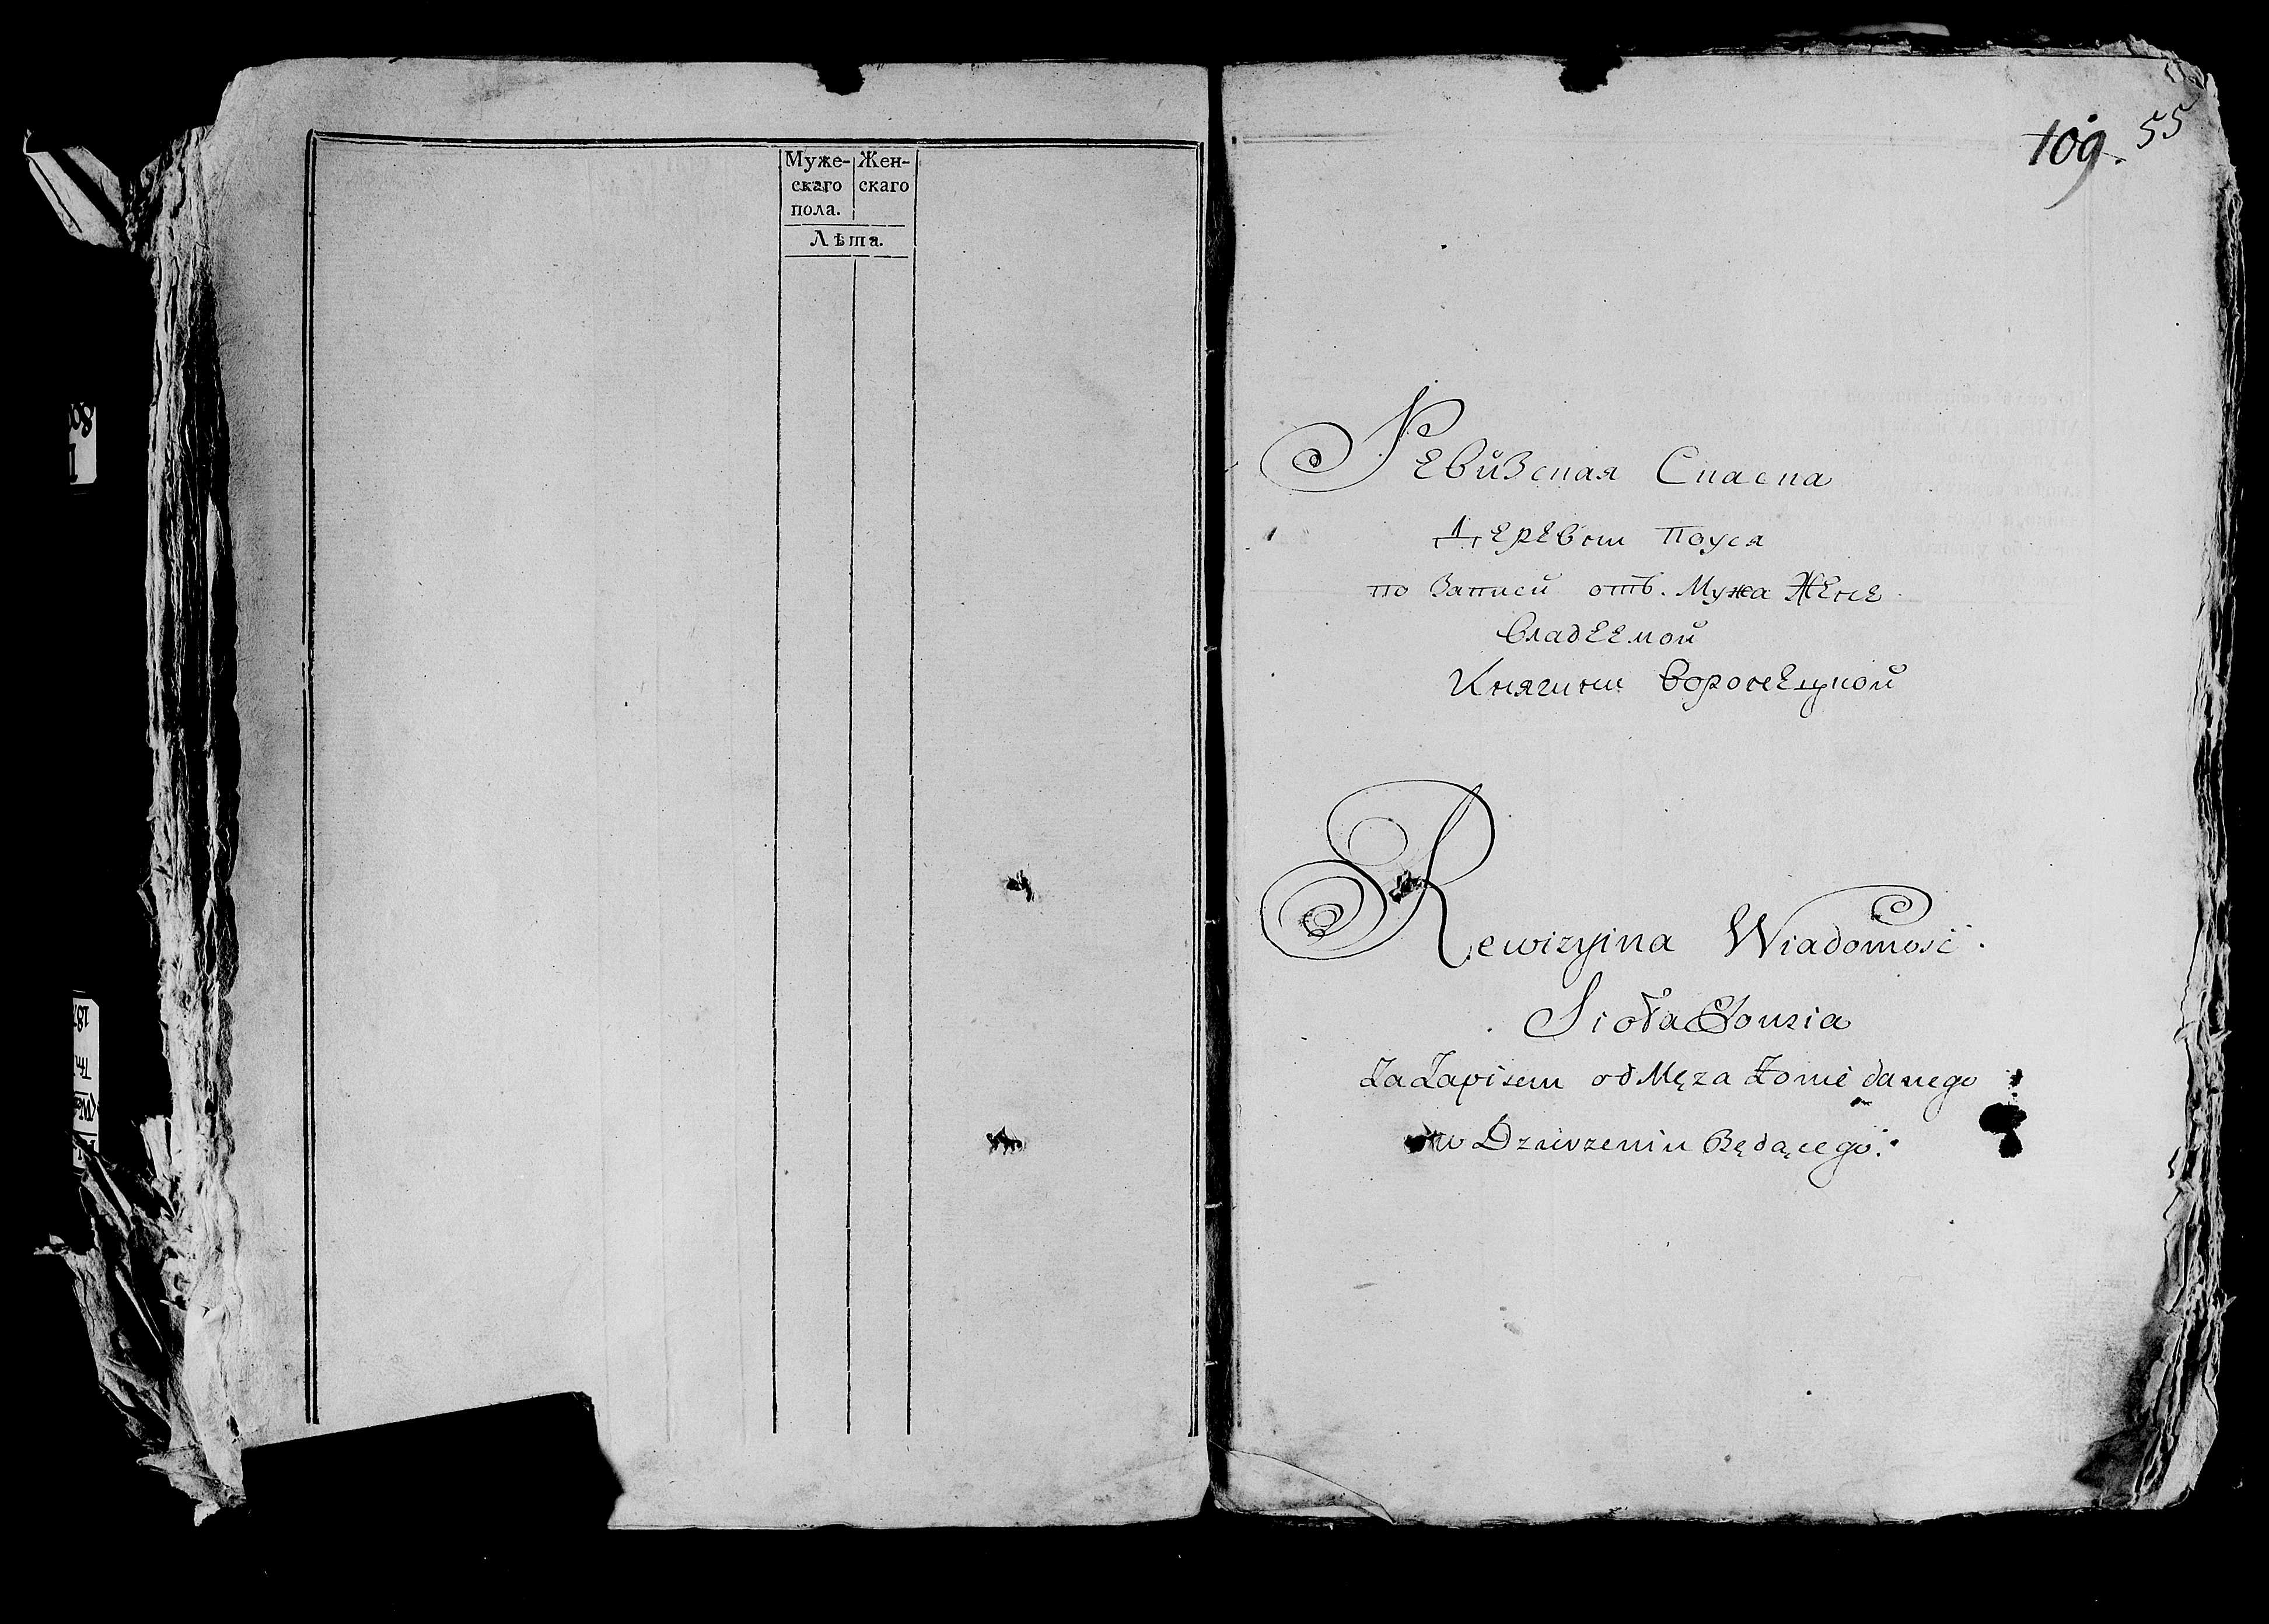 Муже- Жен-
скаго скаго
пола.
Лѣта.
109. 55
Ревизская Скаска
Деревни Поуся
по Записи отъ Мужа Жене
владеемой
Княгини Воронецкой
Rewizyina Wiadomość
Sioła Pousia
Za Zapisem od Męża Żonie danego
w Dzierżeniu Będącego.